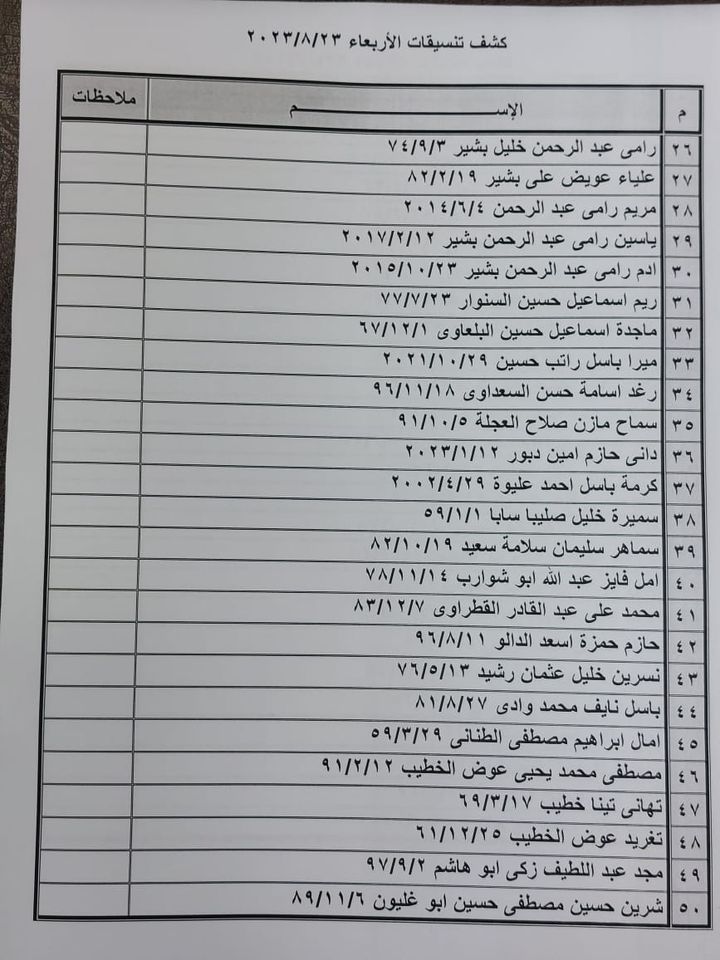 كشف تنسيقات الأربعاء ٢٠٢٣/٨/٢٣
م الإســـــــم ملاحظات
٢٦ رامى عبد الرحمن خليل بشير ٧٤/٩/٣
٢٧ علياء عويض على بشير ٨٢/٢/١٩
٢٨ مريم رامى عبد الرحمن ٢٠١٤/٦/٤
٢٩ ياسين رامى عبد الرحمن بشير ٢٠١٧/٢/١٢
٣٠ ادم رامى عبد الرحمن بشير ٢٠١٥/١٠/٢٣
٣١ ريم اسماعيل حسين السنوار ٧٧/٧/٢٣
٣٢ ماجدة اسماعيل حسين البلعاوى ٦٧/١٢/١
٣٣ ميرا باسل راتب حسين ٢٠٢١/١٠/٢٩
٣٤ رغد اسامة حسن السعداوى ٩٦/١١/١٨
٣٥ سماح مازن صلاح العجلة ٩١/١٠/٥
٣٦ دانى حازم امين دبور ٢٠٢٣/١/١٢
٣٧ كرمة باسل احمد عليوة ٢٠٠٢/٤/٢٩
٣٨ سميرة خليل صليبا سابا ٥٩/١/١
٣٩ سماهر سليمان سلامة سعيد ٨٢/١٠/١٩
٤٠ امل فايز عبد الله ابو شوارب ٧٨/١١/١٤
٤١ محمد على عبد القادر القطراوى ٨٣/١٢/٧
٤٢ حازم حمزة اسعد الدالو ٩٦/٨/١١
٤٣ نسرين خليل عثمان رشيد ٧٦/٥/١٣
٤٤ باسل نايف محمد وادى ٨١/٨/٢٧
٤٥ امال ابراهيم مصطفى الطنانى ٥٩/٣/٢٩
٤٦ مصطفى محمد يحيى عوض الخطيب ٩١/٢/١٢
٤٧ تهانى تينا خطيب ٦٩/٣/١٧
٤٨ تغريد عوض الخطيب ٦١/١٢/٢٥
٤٩ مجد عبد اللطيف زكى ابو هاشم ٩٧/٩/٢
٥٠ شرين حسين مصطفى حسين ابو غليون ٨٩/١١/٦